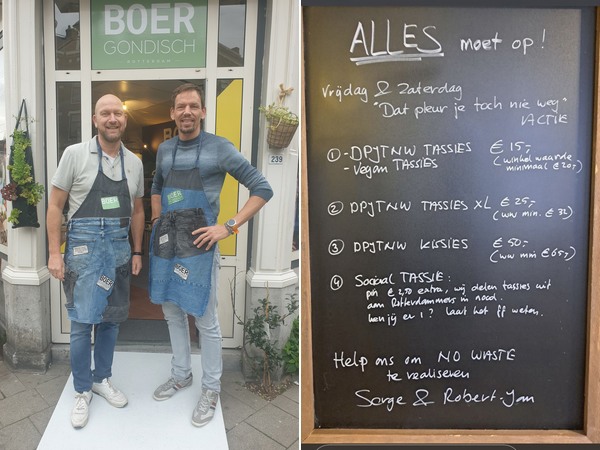 BOER
GONDISCH
ROTTERDAM
BOER
239
ALLES moet op!
Vrijdag & Zaterdag
"Dat pleur je toch nie weg"
ACTIE
① - DPJTNW TASSIES € 15,-
- vegan TASSIES (winkelwaarde
minimaal € 20,-)
② DPJTNW TASSIES XL € 25,-
(ww min. € 32)
③ DPJTNW KISSIES € 50,-
(ww min € 65,-)
④ Sociaal TASSIE:
pin € 2,50 extra, wij delen tassies uit
aan Rotterdammers in nood.
Ken jij er 1? laat het ff weten.
Help ons om NO WASTE
te realiseren
Sorge & Robert-Jan